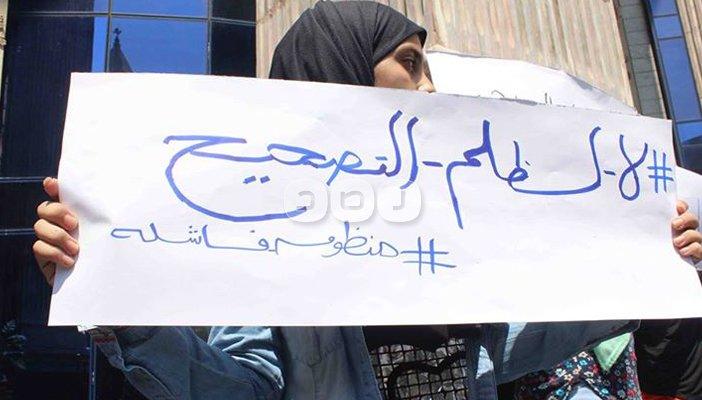 #لا-لظلم-التصحيح
#منظومه_فاشله